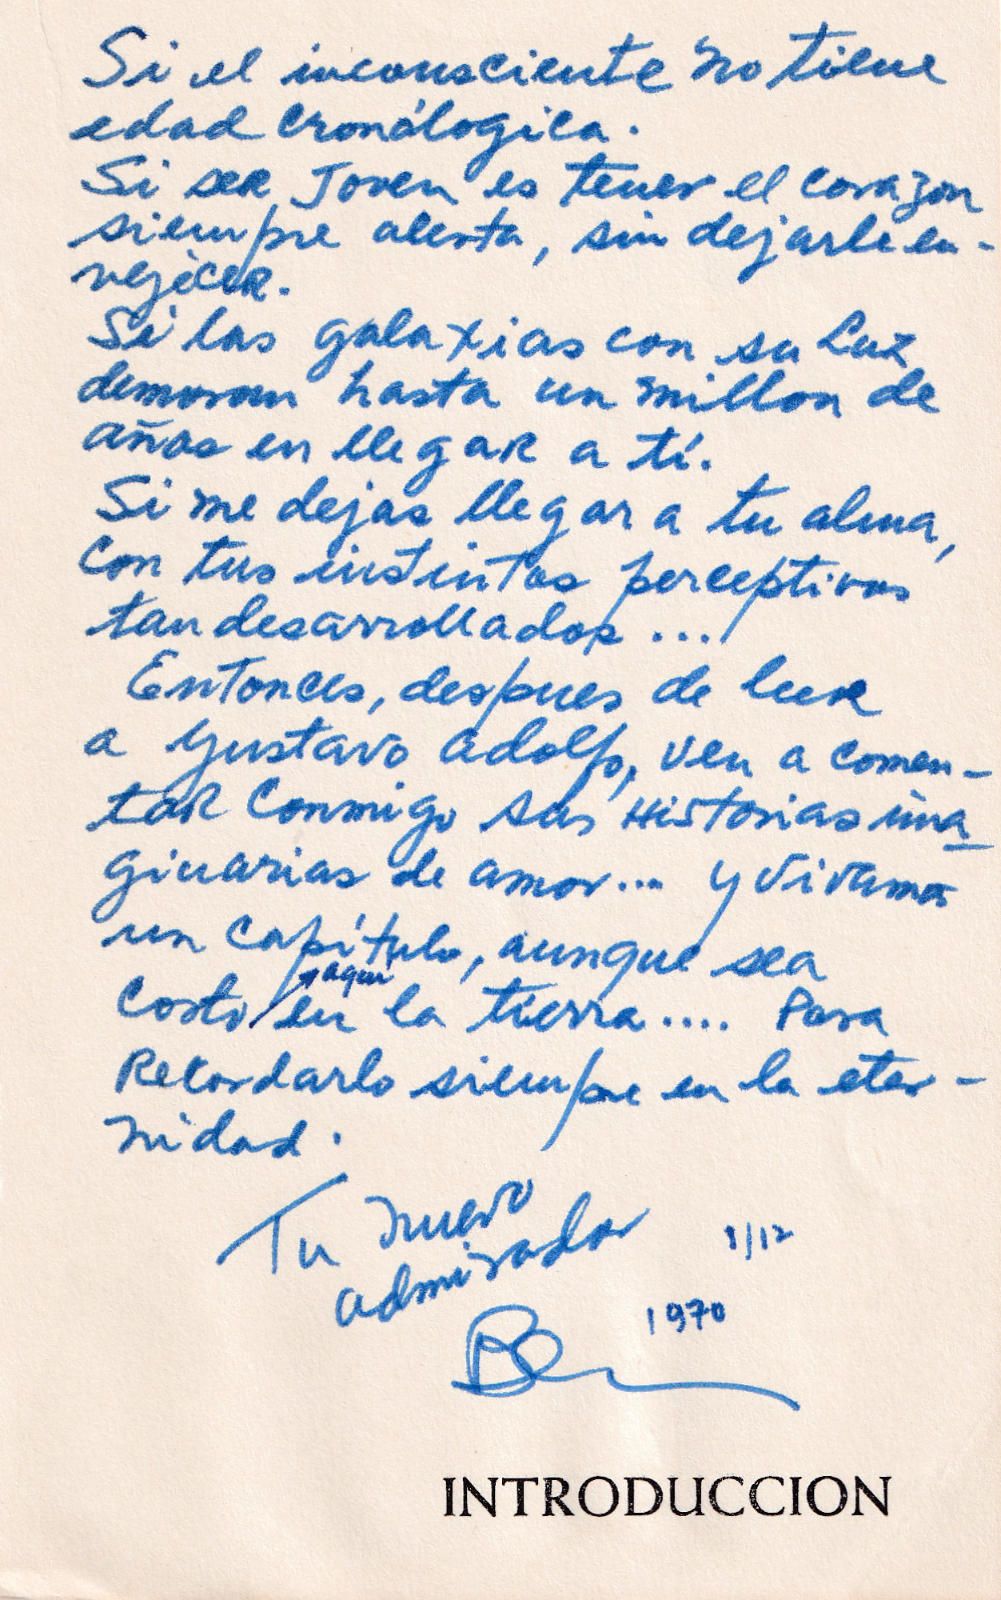 Si el inconsciente no tiene
edad cronólogica.
Si ser Joven es tener el corazon
siempre alerta, sin dejarle en-
vejecer.
Si las galaxias con su Luz
demoran hasta un millon de
años en llegar a tí.
Si me dejas llegar a tu alma,
con tus instintos perceptivos
tan desarrollados ...
Entonces, despues de leer
a Gustavo Adolfo, ven a comen-
tar conmigo sus Historias ima
ginarias de amor... y vivamos
un capítulo, aunque sea
aqui
Corto en la tierra .... Para
Recordarlo siempre en la eter-
nidad.
Tu nuevo
admirador
1/12
1970
INTRODUCCION